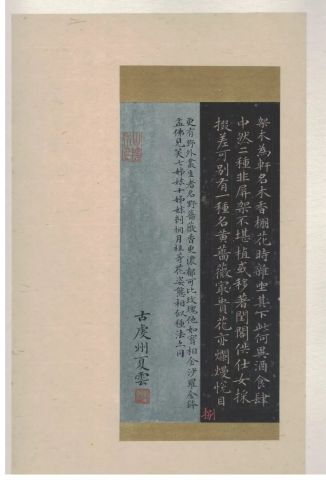 架木為軒名木香棚花時雜坐其下此何異酒食肆
中然二種非屏架不堪植或移著閨閣供仕女採
掇差可别有一種名黄薔薇㝡貴花亦爛熳悅目
更有野外叢生者名野薔薇香更濃郁可比玫瑰他如寳相金沙羅金鉢
盂佛見笑七姊妹十姊妹刺桐月桂等花姿態相似種法亦同
古虔州夏雲
捌